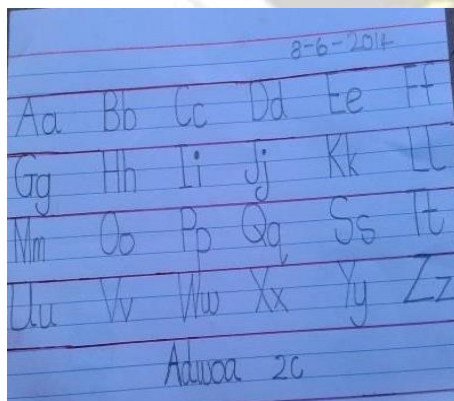 8-6-2014
Aa Bb Cc Dd Ee Ff
Gg Hh Ii Jj Kk Ll
Mm Oo Pp Qq Ss Tt
Uu Vv Ww Xx Yy Zz
Adwoa 2C